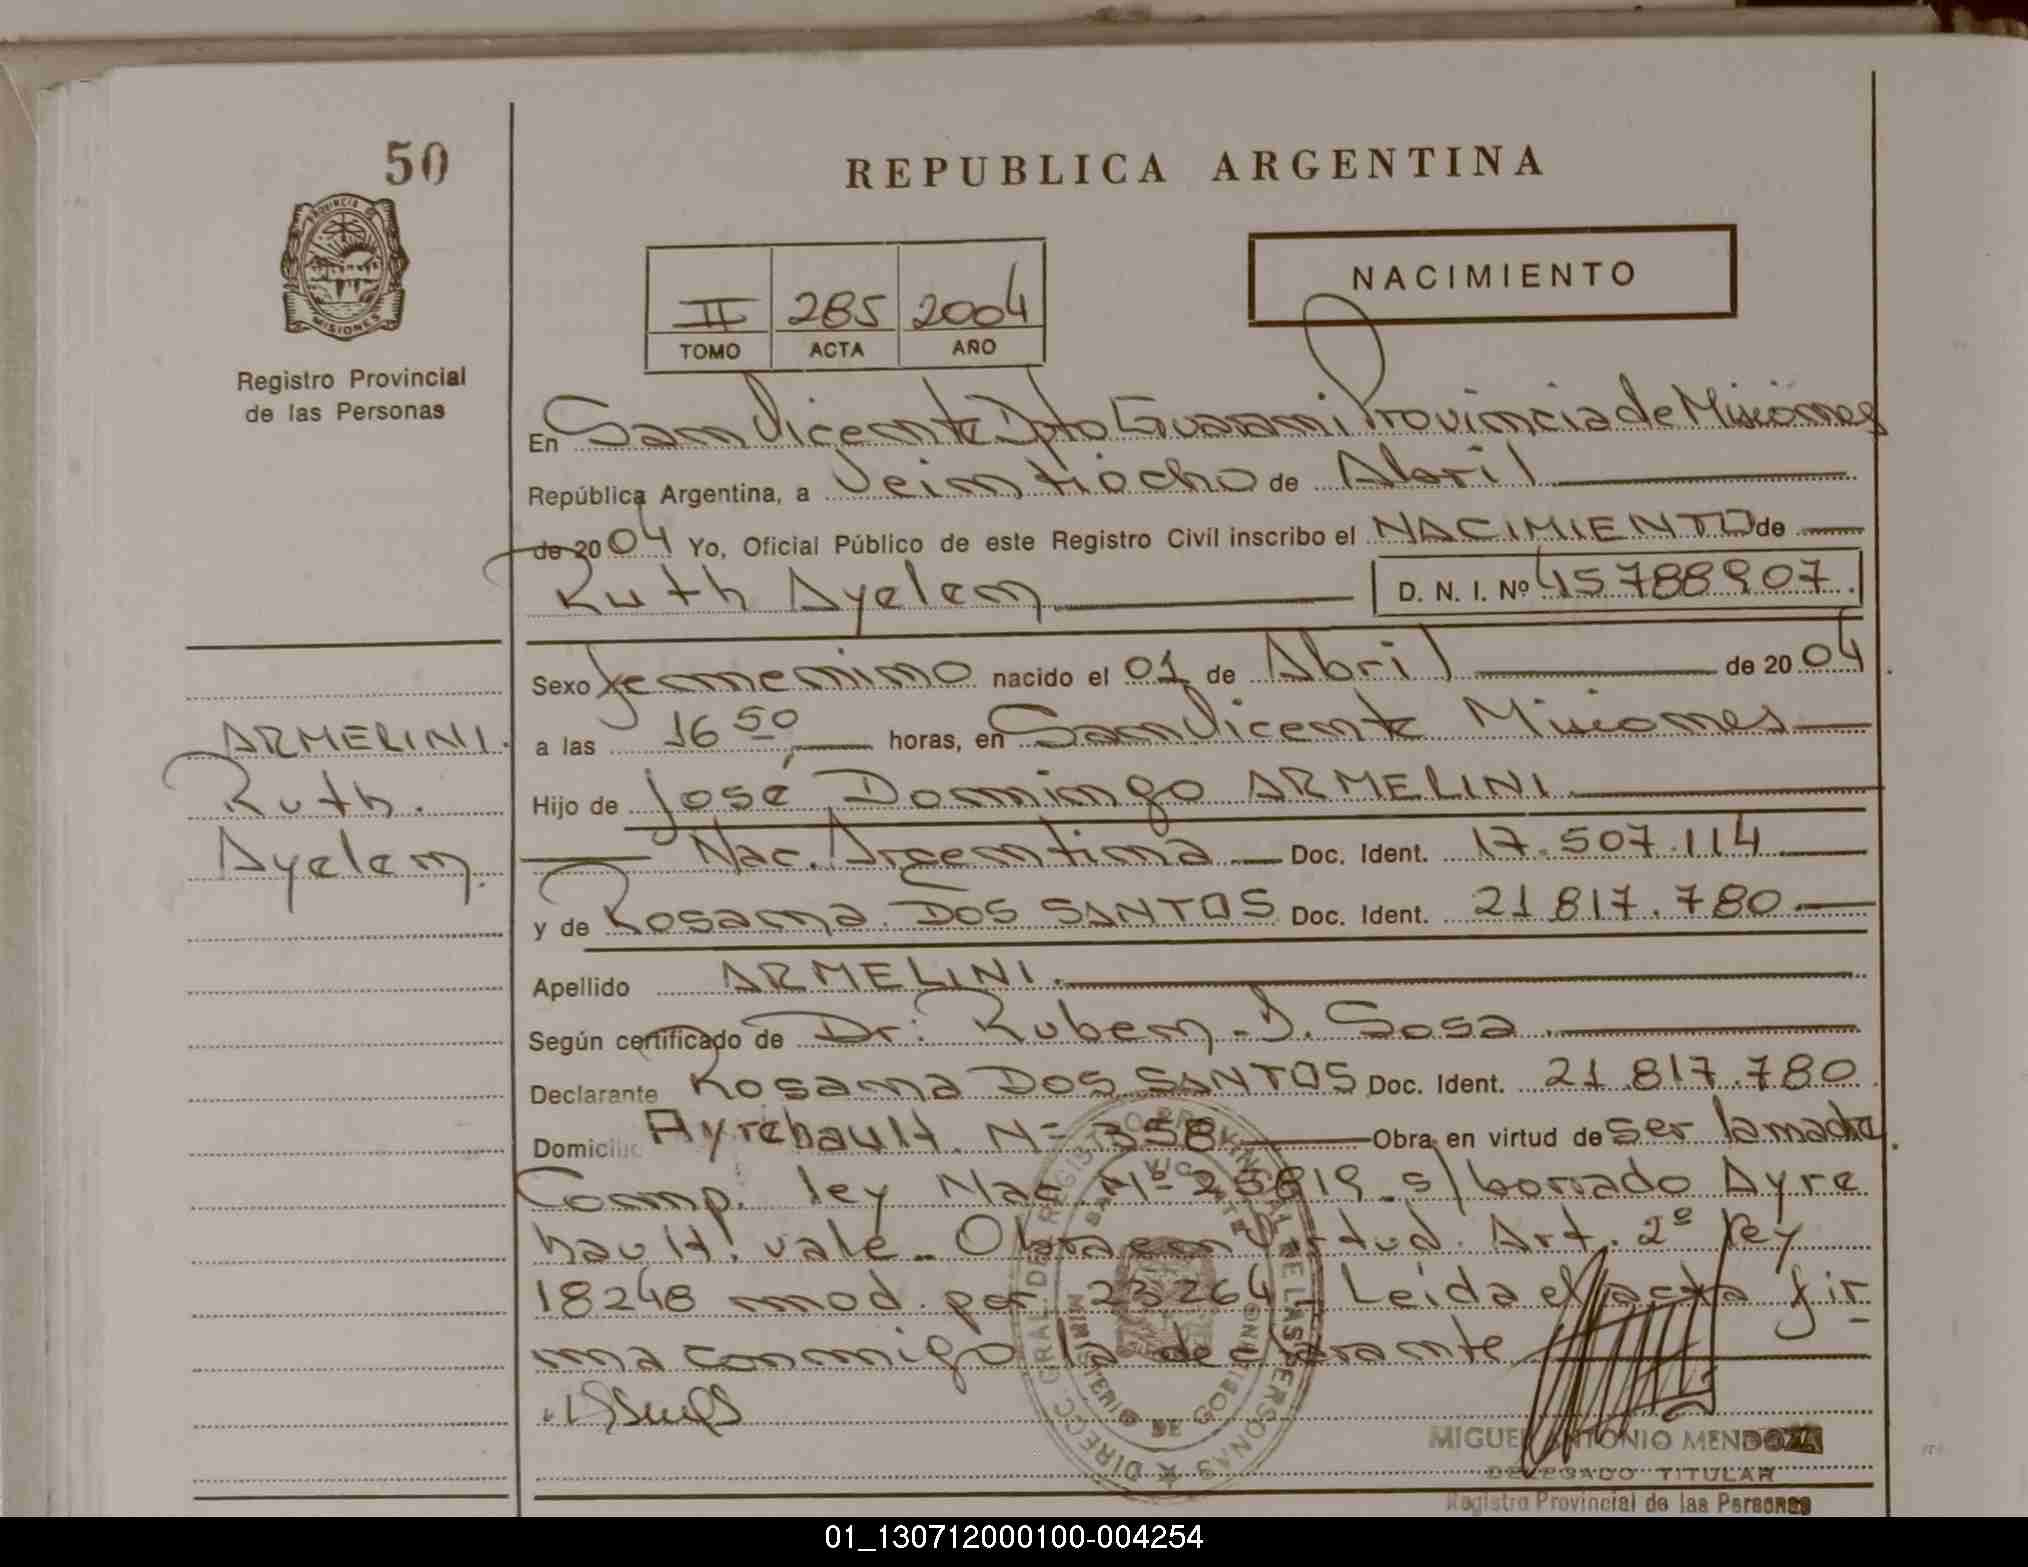 50
REPUBLICA ARGENTINA
PROVINCIA DE
MISIONES
Registro Provincial
de las Personas
NACIMIENTO
II 285 2004
TOMO ACTA AÑO
En San Vicente Dpto Guaraní Provincia de Misiones
República Argentina, a Veintiocho de Abril
de 2004 Yo, Oficial Público de este Registro Civil inscribo el NACIMIENTO de
Ruth Ayelen D. N. I. Nº 45788907.
Sexo femenino nacido el 01 de Abril de 2004
a las 16 50 horas, en San Vicente Misiones
Hijo de José Domingo ARMELINI
Nac. Argentina Doc. Ident. 17.507.114
y de Rosana DOS SANTOS Doc. Ident. 21 817.780
Apellido ARMELINI.
Según certificado de Dr: Ruben D. Sosa
Declarante Rosana DOS SANTOS Doc. Ident. 21 817.780
Domicilio Ayrehault Nº 358 Obra en virtud de ser la madre
Comp. ley Nac Nº 25819 s/borrado Ayre
hault: vale. Obra en virtud Art. 2º ley
18248 mod. por 23264 - Leída el acta fir
ma conmigo la declarante
ARMELINI.
Ruth.
Ayelen.
DIRECC. GRAL. DEL REGISTRO PROVINCIAL DE LAS PERSONAS
SAN VICENTE
MINISTERIO DE GOBIERNO
MIGUEL ANTONIO MENDOZA
DELEGADO TITULAR
Registro Provincial de las Personas
01_130712000100-004254